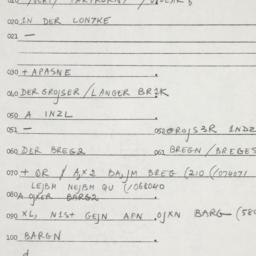 020 IN DER LONTKE
021 —
030 + APASNE
040 DER GROJSER / LANGER BR2K
050 A INZL
051 — 052 GROJS3R INDZ
060 DER BREG2 061 BREGN / BREGES
070 + OR / AJX2 BAJM BREG (210 (/074071
LEJBM NEJBM QU (/068040
080 A OJXER BARG2
090 XL, N1S+ GEJN AFN OJXN BARG (580
100 BARGN